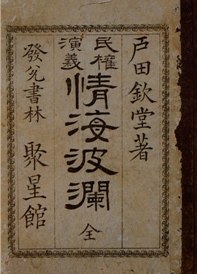 戸田欽堂著
民権
演義
情海波瀾
全
發兌書林
聚星館